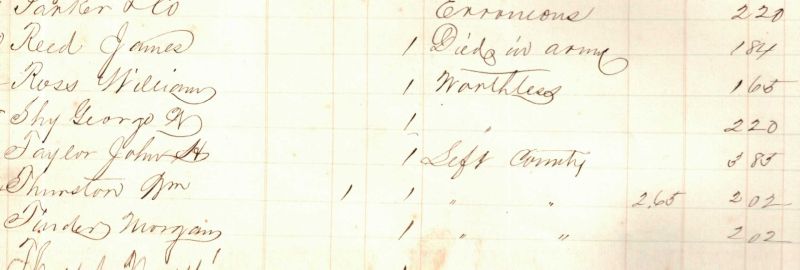 Parker & Co Erronious 220
Reed James 1 Died in army 184
Ross William 1 Worthless 165
Shy George W 1 " 220
Taylor John H 1 Left County 385
Thurston Wm 1 1 " " 2.65 202
Tinder Morgan 1 " " 202